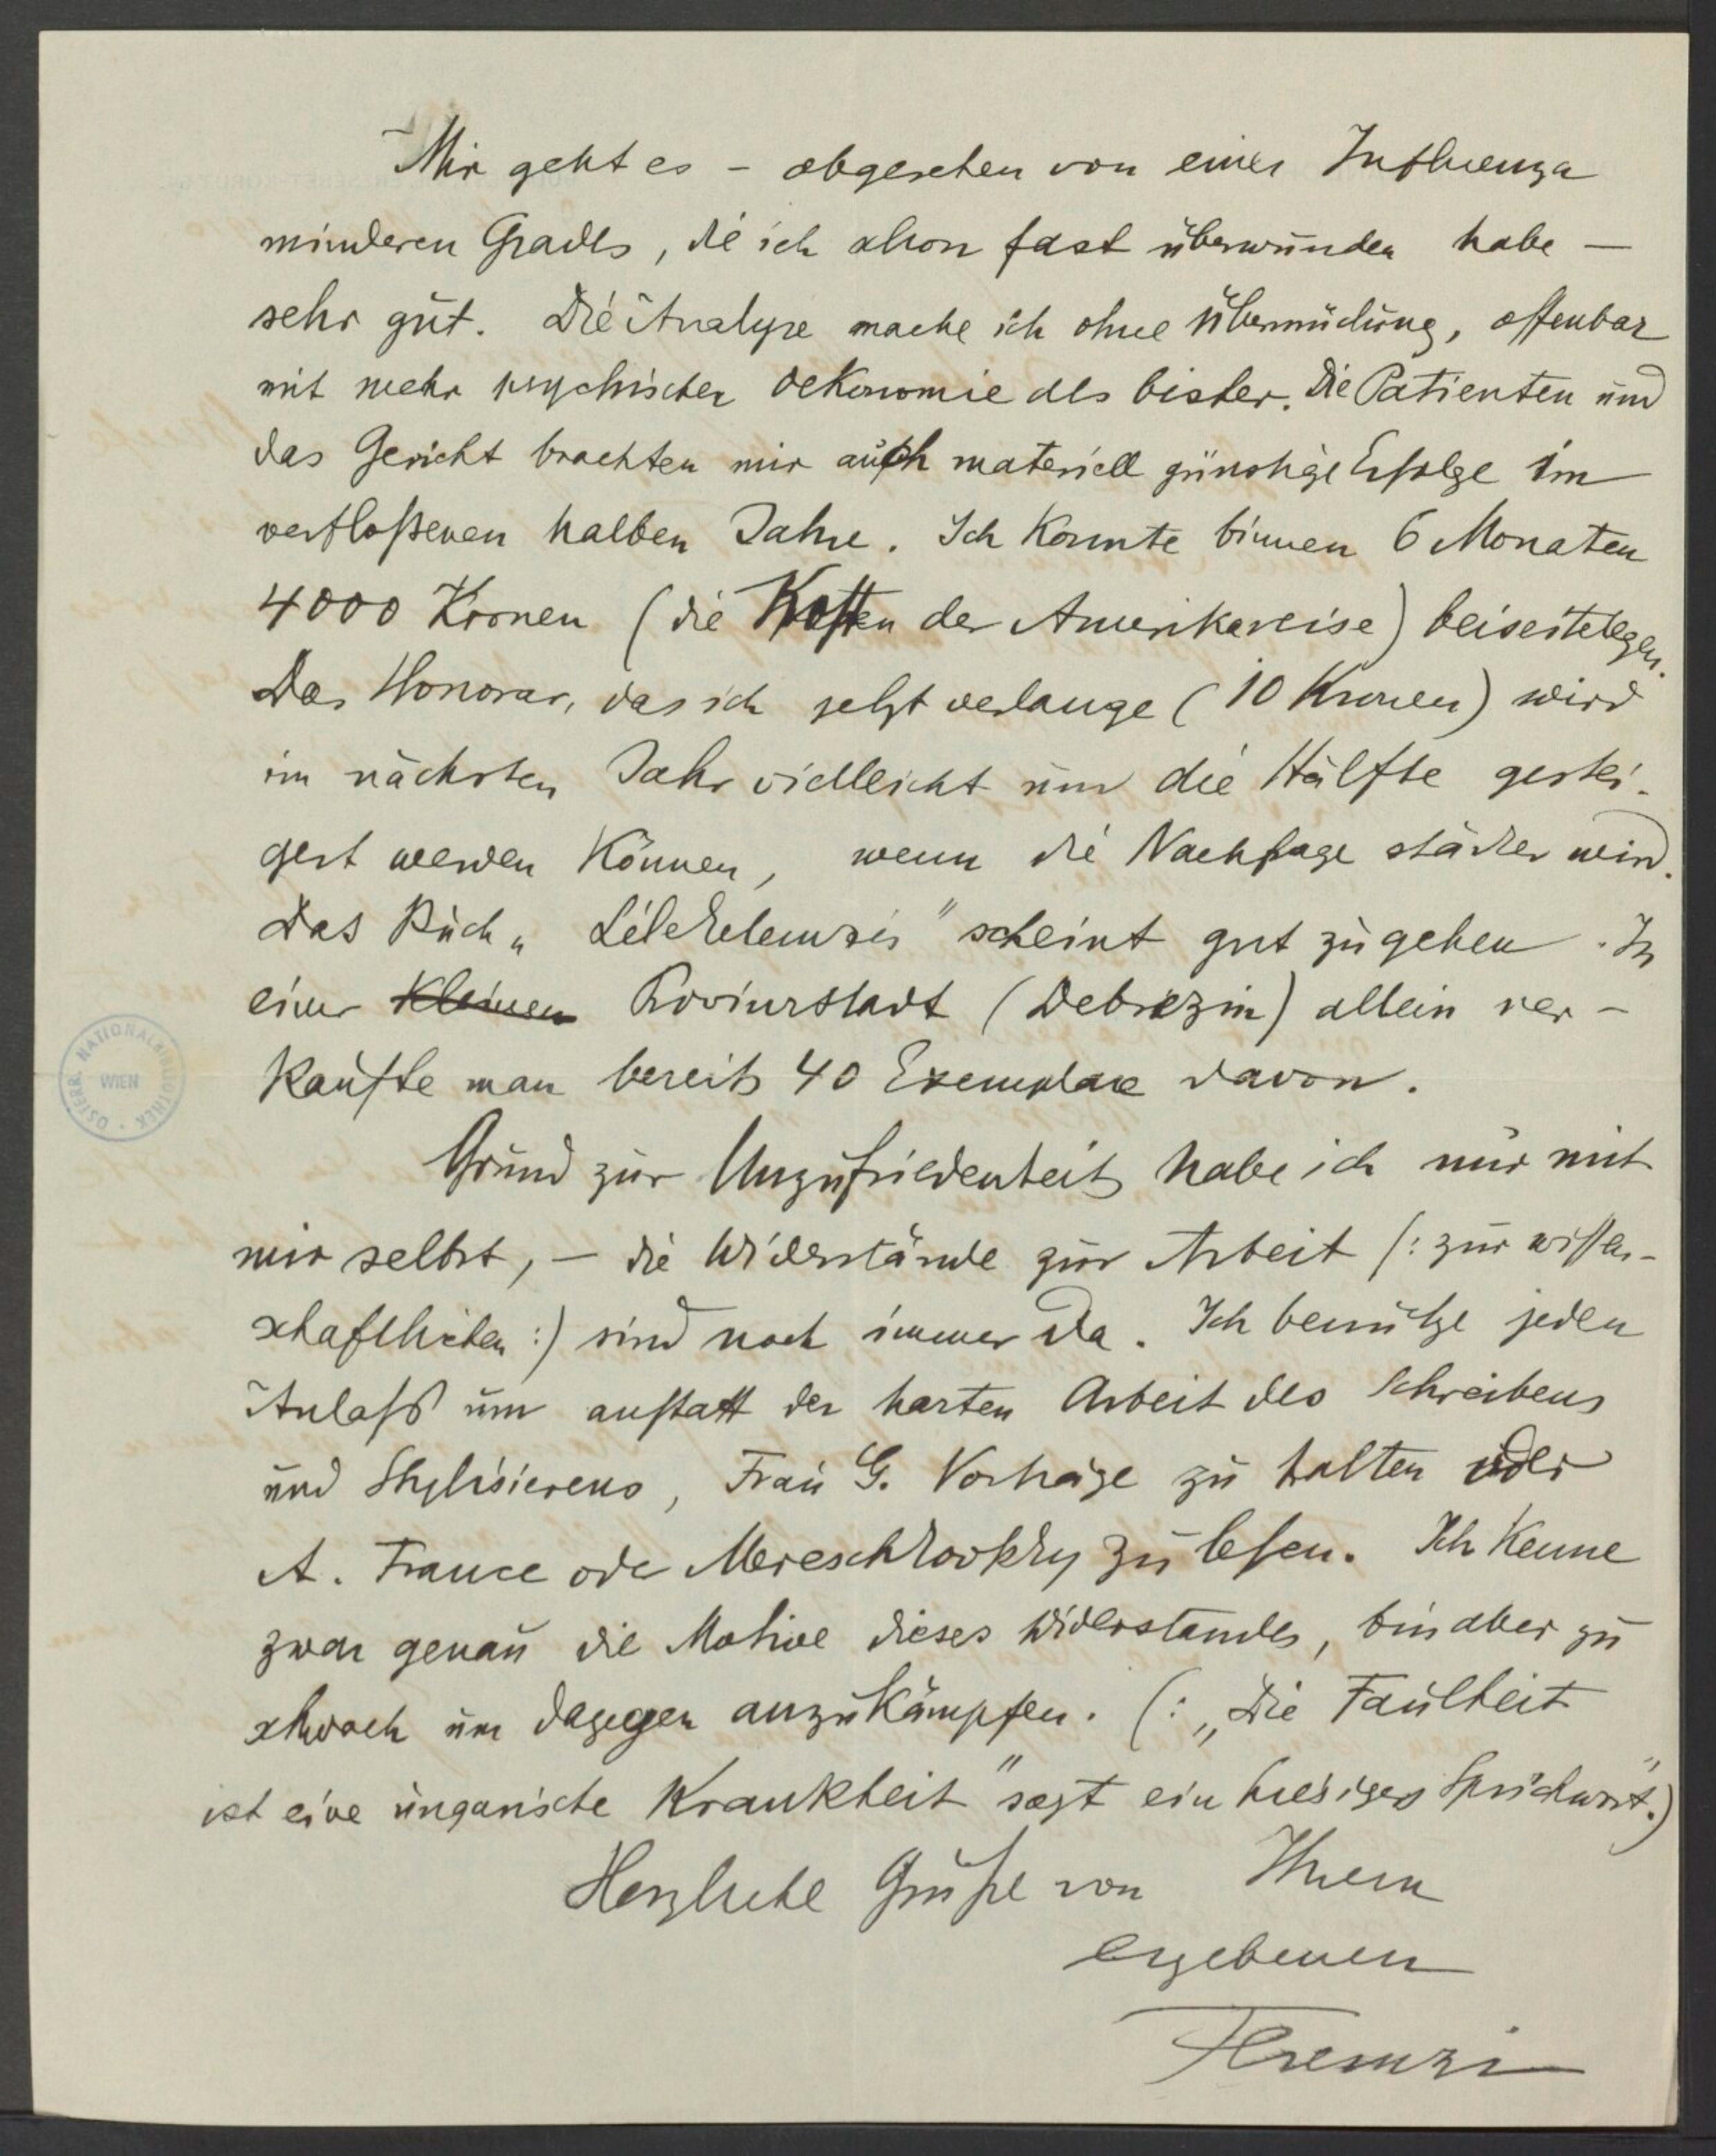 Mir geht es – abgesehen von einer Influenza
minderen Grades, die ich schon fast überwunden habe –
sehr gut. Die Analyse mache ich ohne Übermüdung, offenbar
mit mehr psychischer Oekonomie als bisher. Die Patienten und
das Gericht brachten mir auch materiell günstige Erfolge im
verfloßenen halben Jahre. Ich konnte binnen 6 Monaten
4000 Kronen (die Kosten der Amerikareise) beiseitelegen.
Das Honorar, das ich jetzt verlange (10 Kronen) wird
im nächsten Jahr vielleicht um die Hälfte gestei-
gert werden können, wenn die Nachfrage stärker wird.
Das Buch „Lélekelemzés" scheint gut zu gehen. In
einer kleinen Provinzstadt (Debrezin) allein ver-
kaufte man bereits 40 Exemplare davon.
Grund zur Unzufriedenheit habe ich nur mit
mir selbst, – die Widerstände zur Arbeit (: zur wissen-
schaftlichen :) sind noch immer da. Ich benütze jeden
Anlaß um anstatt der harten Arbeit des Schreibens
und Stylisierens, Frau G. Vorträge zu halten oder
A. France oder Mereschkovsky zu lesen. Ich kenne
zwar genau die Motive dieses Widerstandes, bin aber zu
schwach um dagegen anzukämpfen. (: „Die Faulheit
ist eine ungarische Krankheit" sagt ein hiesiges Sprichwort".)
Herzliche Grüße von Ihrem
ergebenen
Ferenczi
ÖSTERR. NATIONALBIBLIOTHEK
WIEN